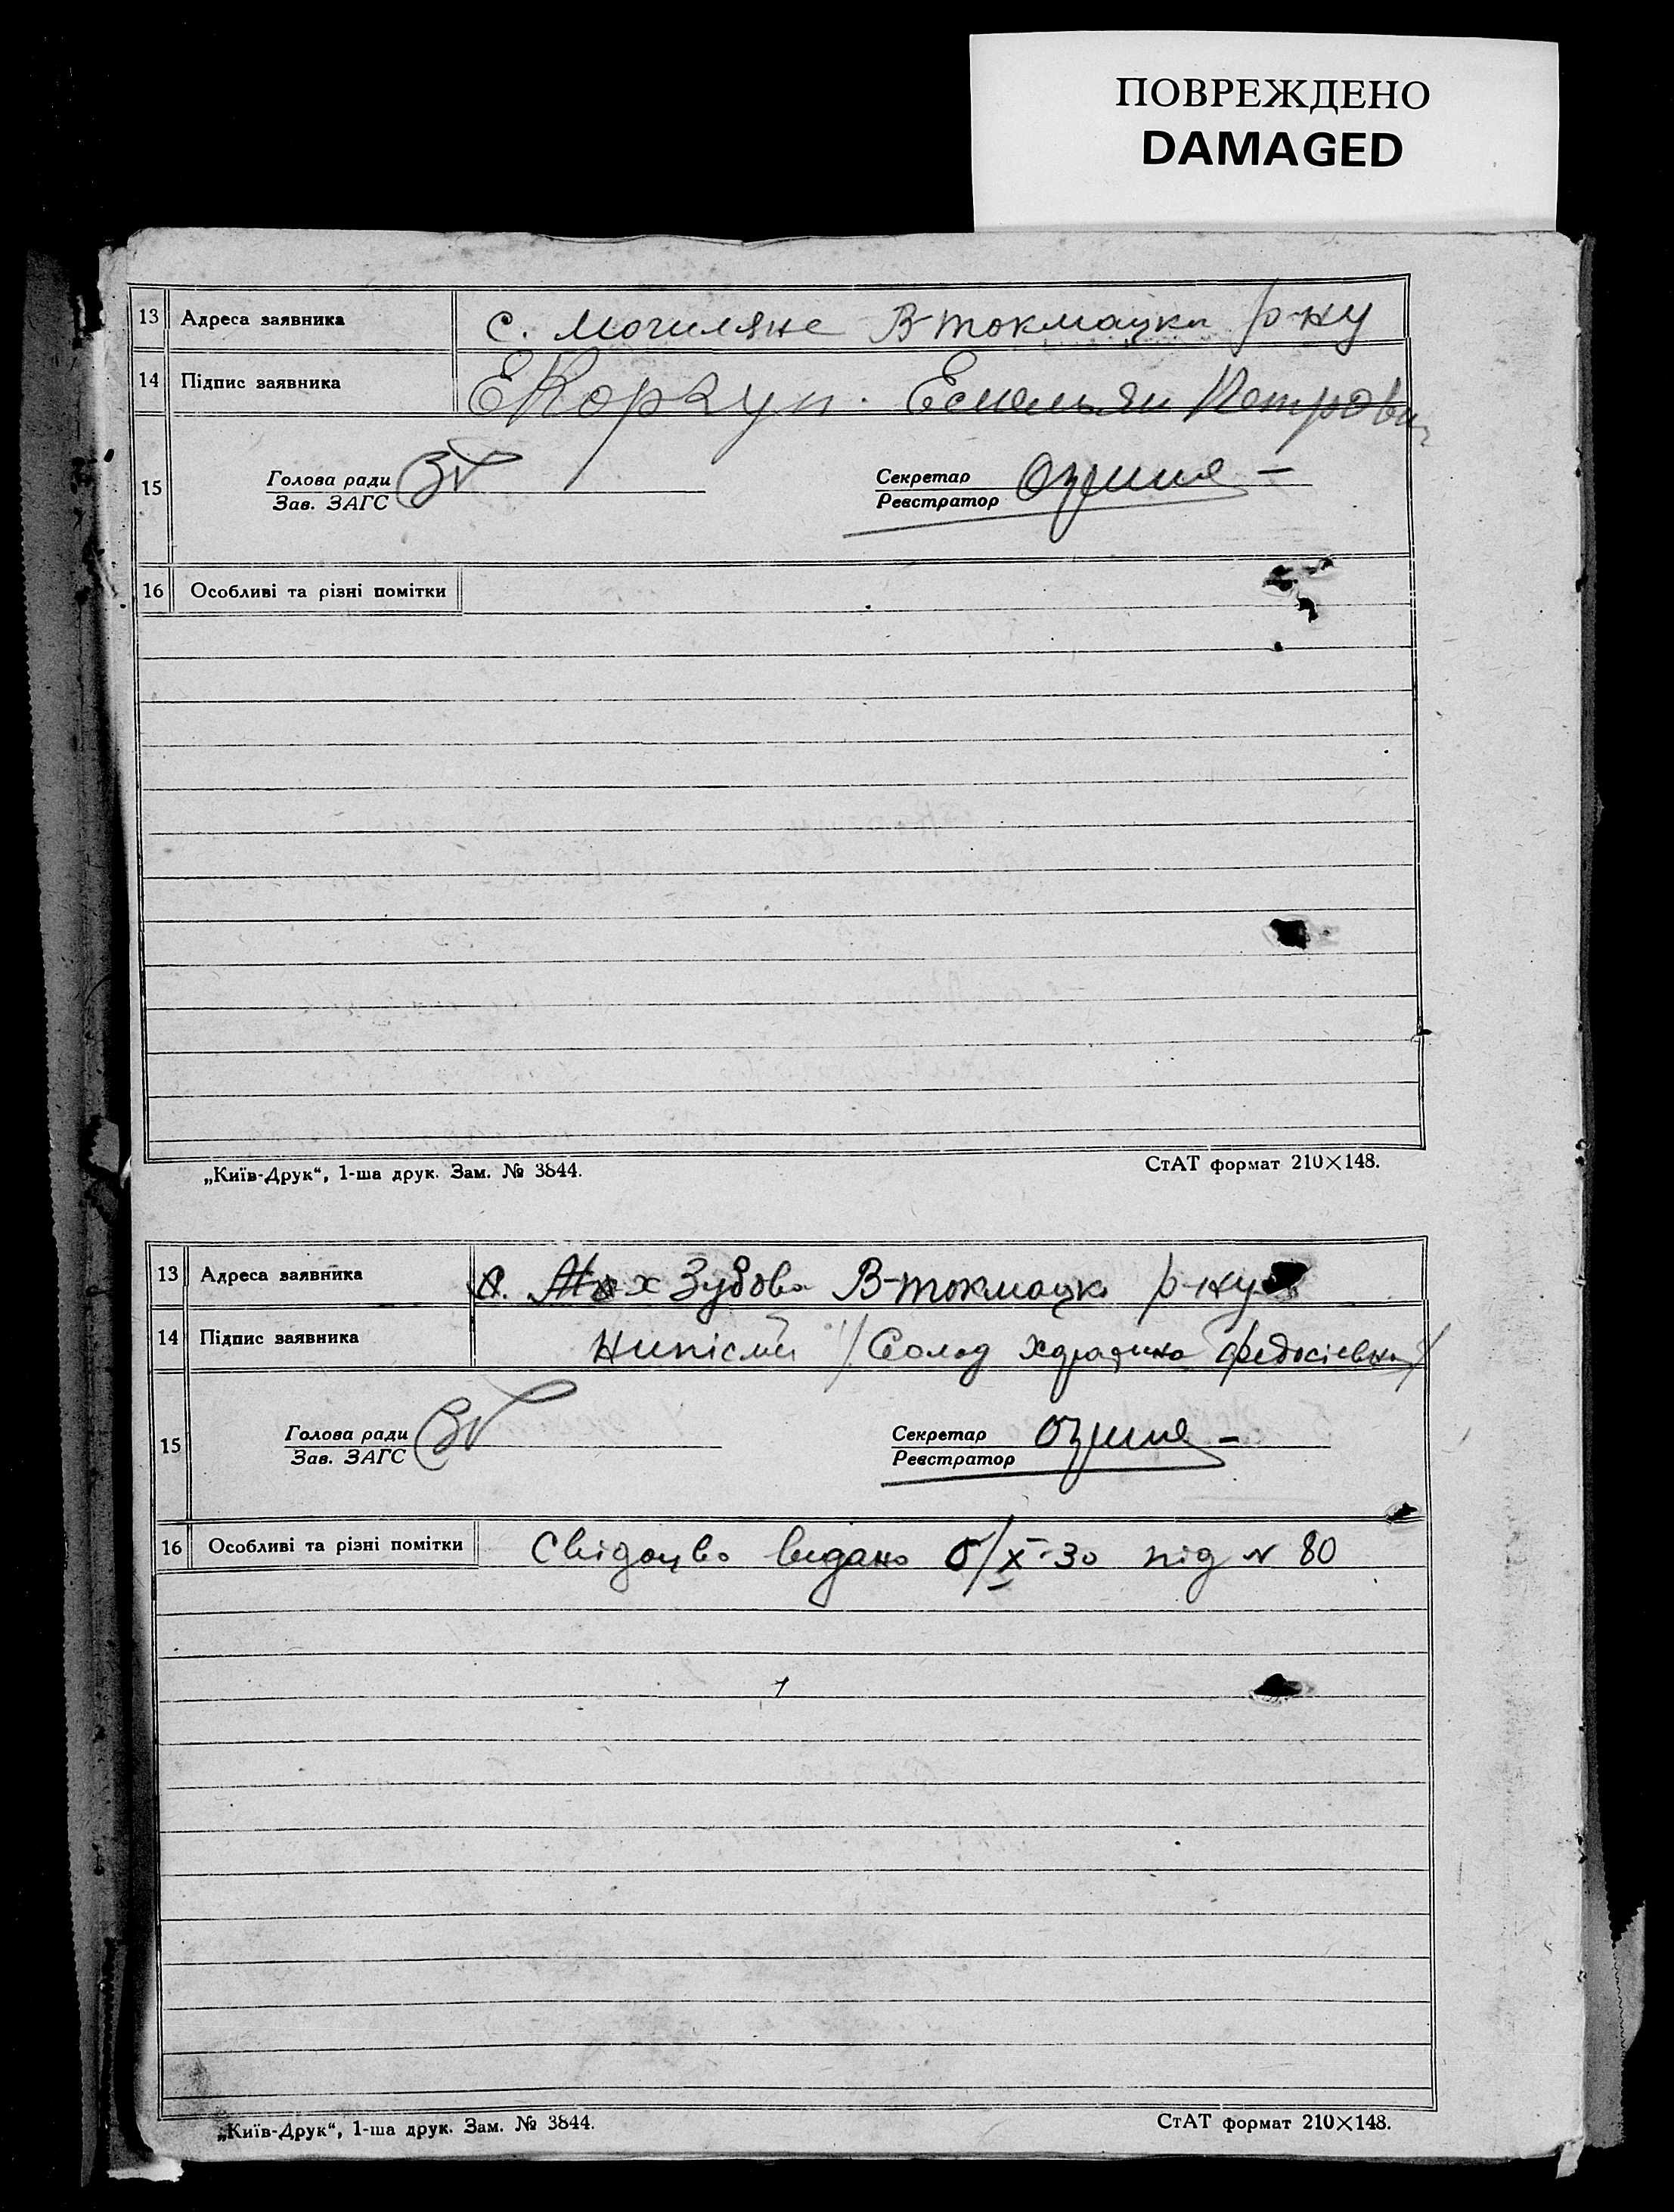 ПОВРЕЖДЕНО
DAMAGED
13 Адреса заявника с. Могиляне В-токмацьк р-ну
14 Підпис заявника ЕКорзун. Емельян Петрович
15 Голова ради Секретар
Зав. ЗАГС Реєстратор
16 Особливі та різні помітки
„Київ-Друк“, 1-ша друк. Зам. № 3844. СтАТ формат 210×148.
13 Адреса заявника х Зубово В-токмацько р-ну
14 Підпис заявника Нипісмі /Солод Федосієвна/
15 Голова ради Секретар
Зав. ЗАГС Реєстратор
16 Особливі та різні помітки Свідоцво видано 5/X-30 під № 80
„Київ-Друк“, 1-ша друк. Зам. № 3844. СтАТ формат 210×148.